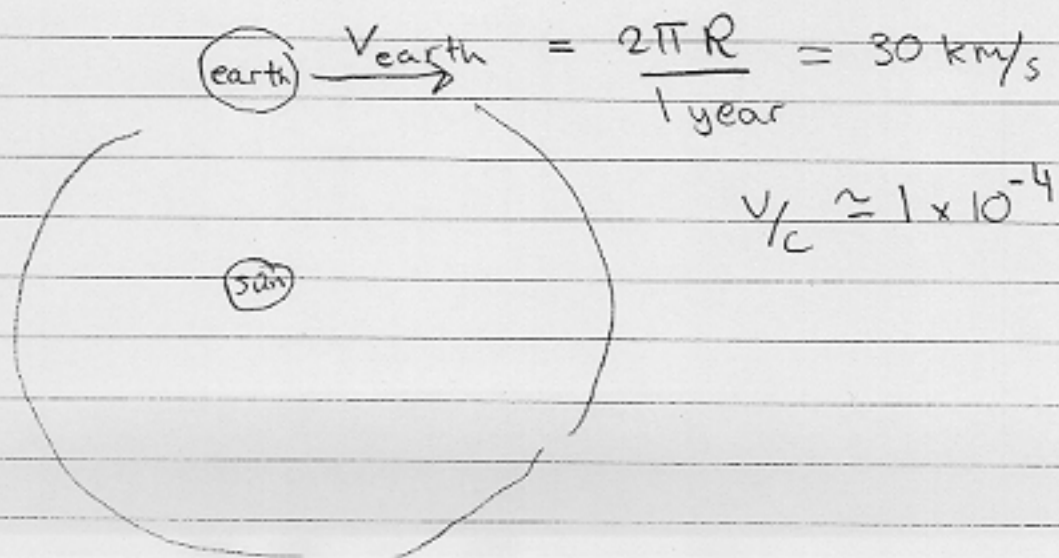 earth V_earth = 2πR / 1 year = 30 km/s
v/c ≃ 1 × 10⁻⁴
sun